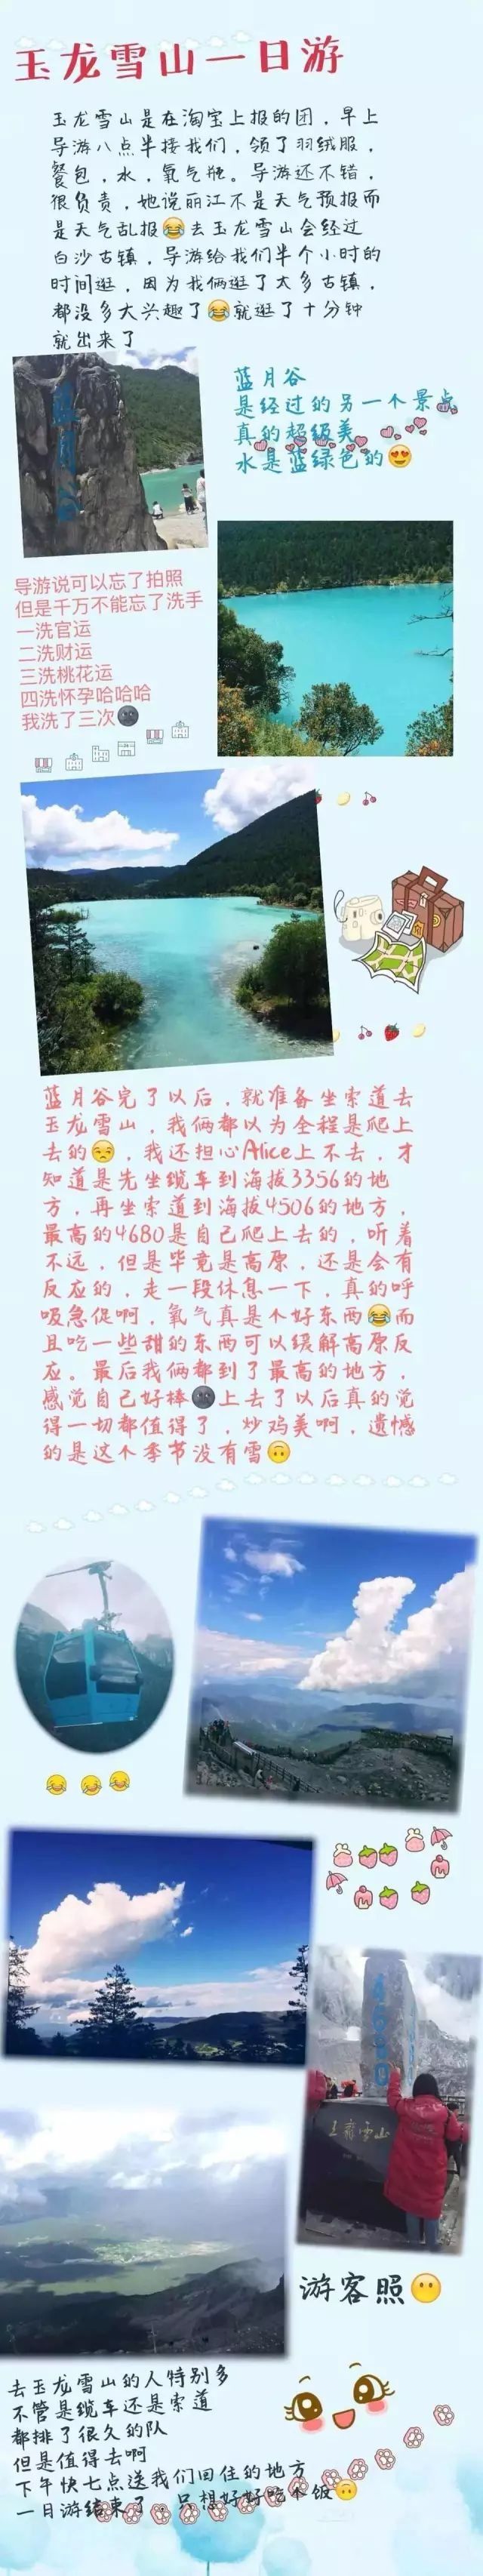 玉龙雪山一日游
玉龙雪山是在淘宝上报的团，早上
导游八点半接我们，领了羽绒服，
餐包，水，氧气瓶。导游还不错，
很负责，她说丽江不是天气预报而
是天气乱报😂去玉龙雪山会经过
白沙古镇，导游给我们半个小时的
时间逛，因为我俩逛了太多古镇，
都没多大兴趣了😂就逛了十分钟
就出来了
蓝月谷
蓝月谷
是经过的另一个景点
真的超级美
水是蓝绿色的😍
导游说可以忘了拍照
但是千万不能忘了洗手
一洗官运
二洗财运
三洗桃花运
四洗怀孕哈哈哈
我洗了三次🌚
蓝月谷完了以后，就准备坐索道去
玉龙雪山，我俩都以为全程是爬上
去的😒，我还担心Alice上不去，才
知道是先坐缆车到海拔3356的地
方，再坐索道到海拔4506的地方，
最高的4680是自己爬上去的，听着
不远，但是毕竟是高原，还是会有
反应的，走一段休息一下，真的呼
吸急促啊，氧气真是个好东西😂而
且吃一些甜的东西可以缓解高原反
应。最后我俩都到了最高的地方，
感觉自己好棒🌚上去了以后真的觉
得一切都值得了，炒鸡美啊，遗憾
的是这个季节没有雪🙃
玉龍雪山
游客照😶
去玉龙雪山的人特别多
不管是缆车还是索道
都排了很久的队
但是值得去啊
下午快七点送我们回住的地方
一日游结束了，只想好好吃个饭🙃